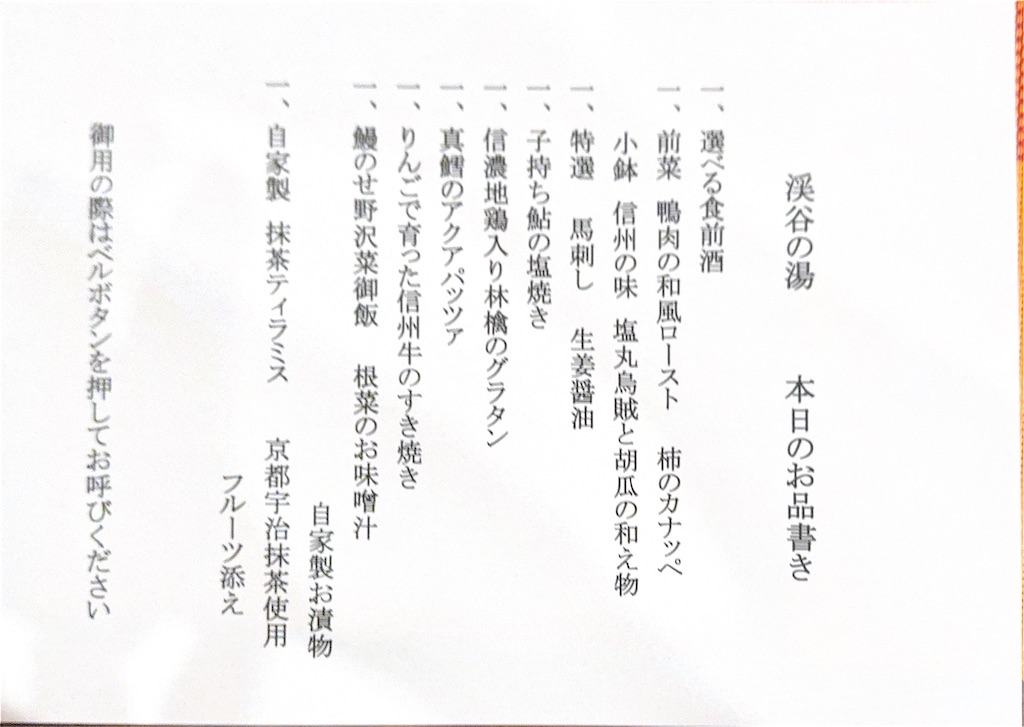 渓谷の湯　本日のお品書き
一、選べる食前酒
一、前菜　鴨肉の和風ロースト　柿のカナッペ
小鉢　信州の味　塩丸烏賊と胡瓜の和え物
一、特選　馬刺し　生姜醤油
一、子持ち鮎の塩焼き
一、信濃地鶏入り林檎のグラタン
一、真鱈のアクアパッツァ
一、りんごで育った信州牛のすき焼き
一、鰻のせ野沢菜御飯　根菜のお味噌汁
自家製お漬物
一、自家製　抹茶ティラミス　京都宇治抹茶使用
フルーツ添え
御用の際はベルボタンを押してお呼びください